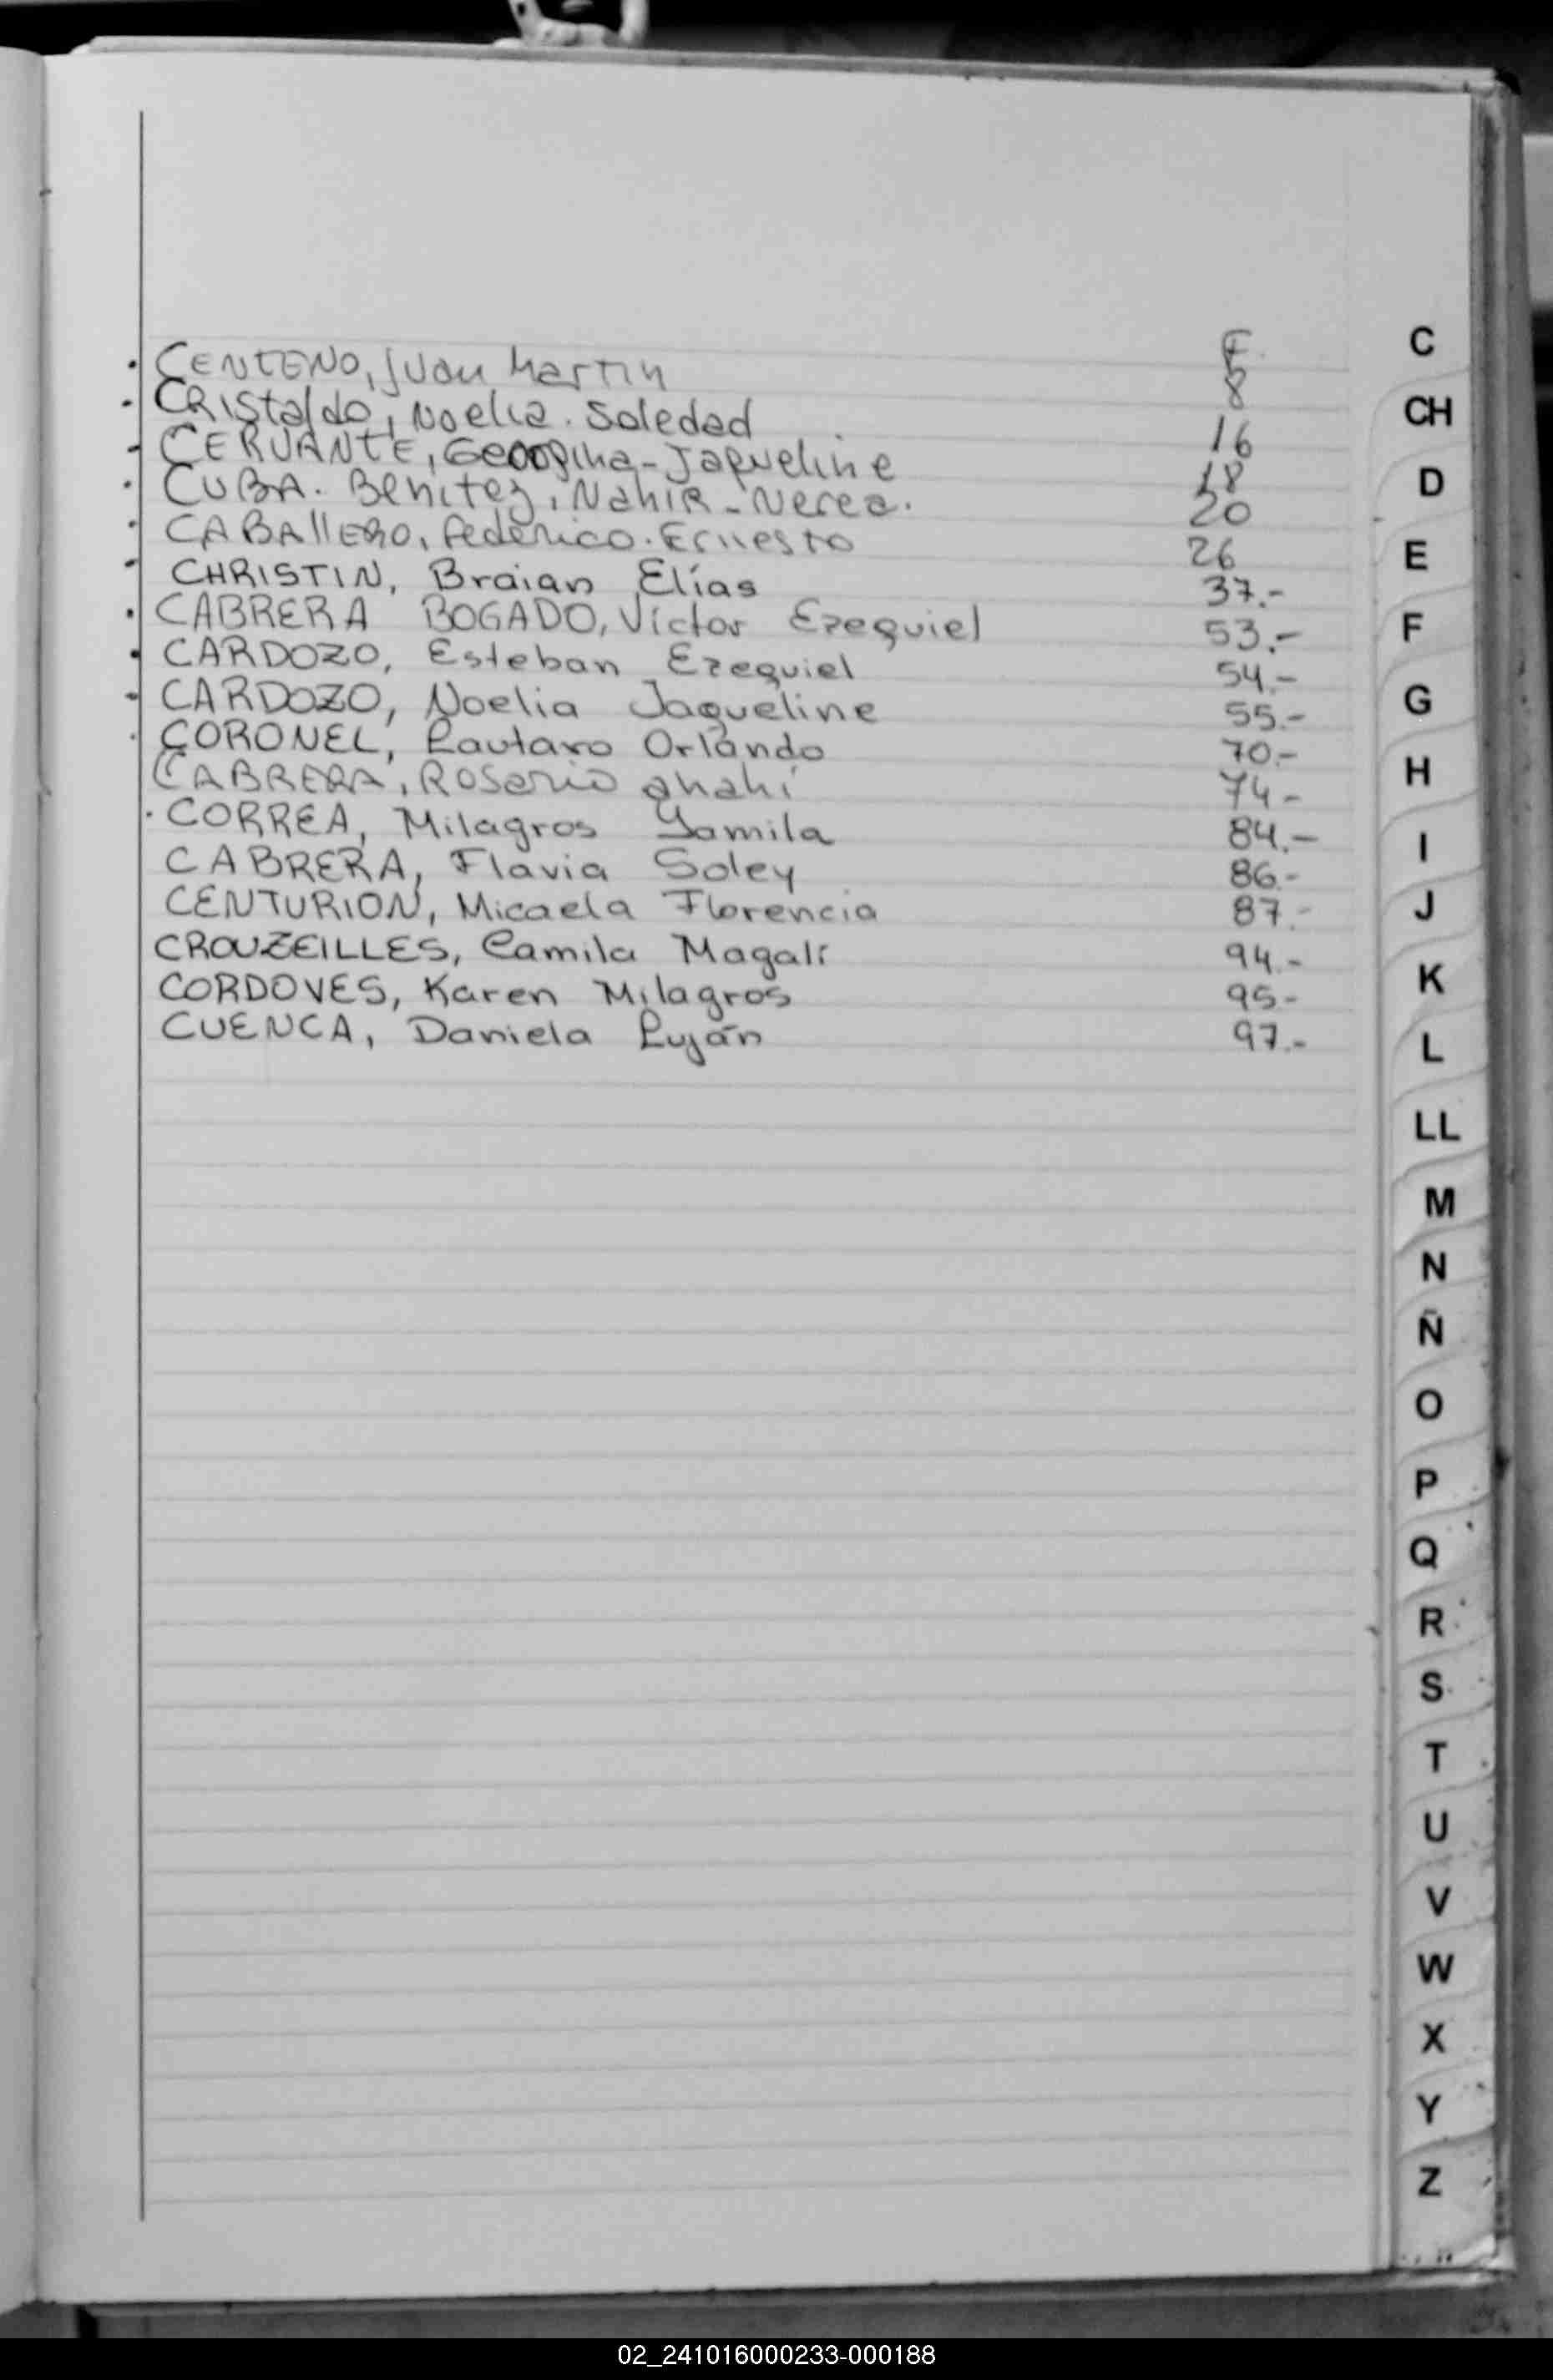 F.
CENTENO, Juan Martin 8
CRistaldo, Noelia. Soledad 16
CERVANTE, Georgina - Jaqueline 18
CUBA. Benitez, NahiR - Nerea. 20
CABAllERO, Federico. Ernesto 26
CHRISTIN, Braian Elías 37.-
CABRERA BOGADO, Víctor Ezequiel 53.-
CARDOZO, Esteban Ezequiel 54.-
CARDOZO, Noelia Jaqueline 55.-
CORONEL, Lautaro Orlando 70.-
CABRERA, Rosario anahí 74-
CORREA, Milagros Yamila 84.-
CABRERA, Flavia Soley 86.-
CENTURION, Micaela Florencia 87.-
CROUZEILLES, Camila Magalí 94.-
CORDOVES, Karen Milagros 95-
CUENCA, Daniela Luján 97.-
C
CH
D
E
F
G
H
I
J
K
L
LL
M
N
Ñ
O
P
Q
R
S
T
U
V
W
X
Y
Z
02_241016000233-000188